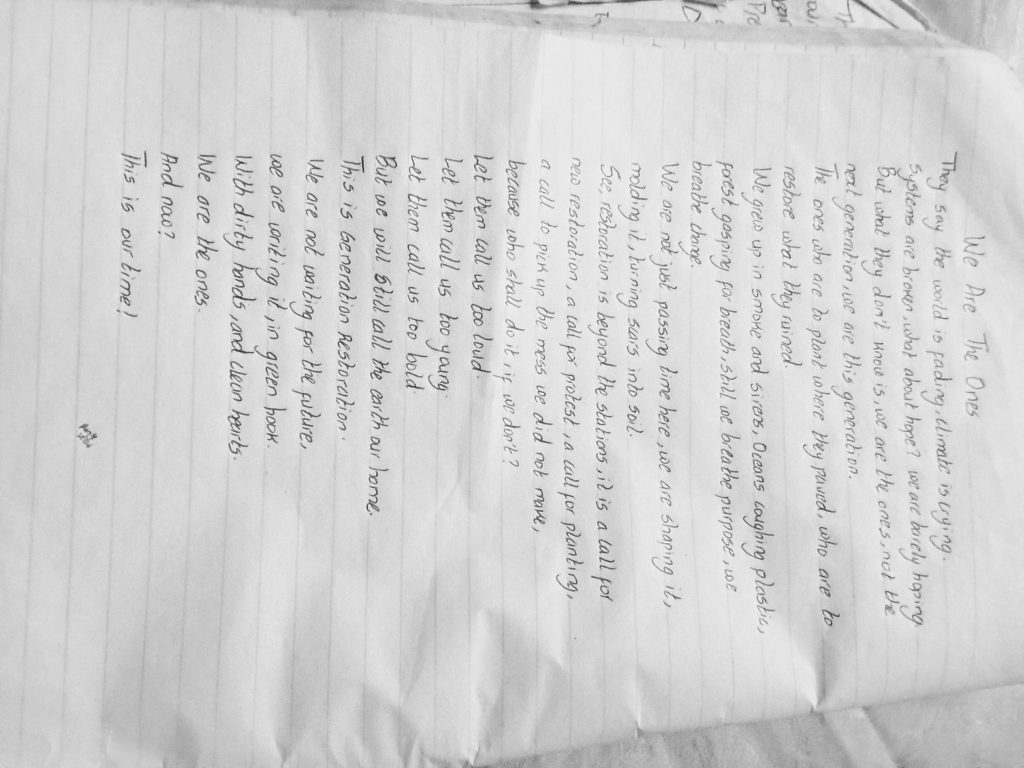 We Are The Ones
They say the world is fading, climate is crying.
Systems are broken, what about hope? we are barely hoping
But what they don't know is, we are the ones, not the
next generation, we are this generation.
The ones who are to plant where they paved, who are to
restore what they ruined.
We grew up in smoke and sirens, Oceans coughing plastic,
forest gasping for breath. still we breathe purpose, we
breathe change.
We are not just passing time here, we are shaping it,
molding it, turning scars into soil.
See, restoration is beyond the stations, it is a call for
new restoration, a call for protest, a call for planting,
a call to pick up the mess we did not make,
because who shall do it if we don't?
Let them call us too loud.
Let them call us too young.
Let them call us too bold.
But we will still call the earth our home.
This is Generation Restoration.
We are not waiting for the future,
we are writing it, in green book.
With dirty hands, and clean hearts.
We are the ones.
And now?
This is our time!